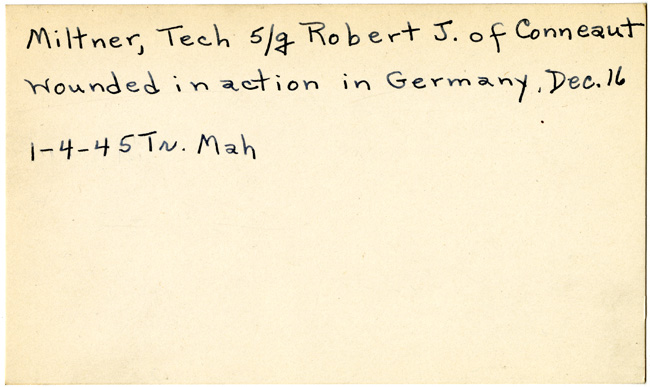 Miltner, Tech 5/g Robert J. of Conneaut
Wounded in action in Germany, Dec. 16
1-4-45 Tr. Mah